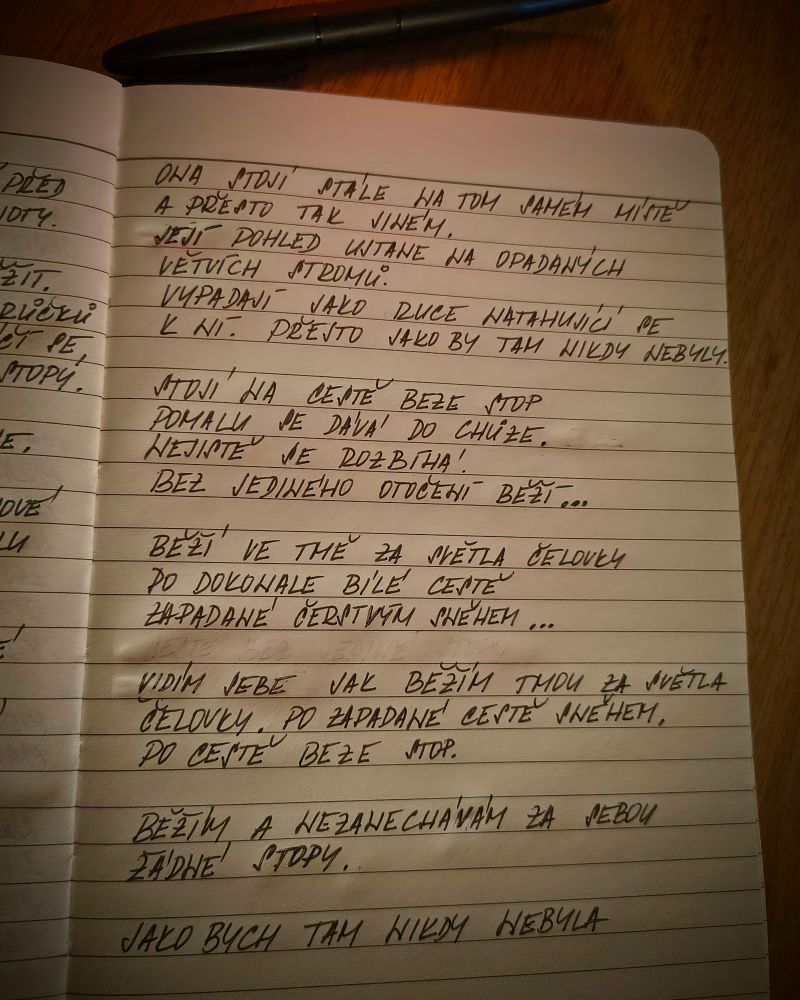 PŘED
ŽÍT.
RŮČKŮ
SE,
STOPY.
ONA STOJÍ STÁLE NA TOM SAMÉM MÍSTĚ
A PŘESTO TAK JINÉM.
JEJÍ POHLED USTANE NA OPADANÝCH
VĚTVÍCH STROMŮ.
VYPADAJÍ JAKO RUCE NATAHUJÍCÍ SE
K NÍ. PŘESTO JAKO BY TAM NIKDY NEBYLY.
STOJÍ NA CESTĚ BEZE STOP
POMALU SE DÁVÁ DO CHŮZE.
NEJISTĚ SE ROZBÍHÁ.
BEZ JEDINÉHO OTOČENÍ BĚŽÍ...
BĚŽÍ VE TMĚ ZA SVĚTLA ČELOVKY
PO DOKONALE BÍLÉ CESTĚ
ZAPADANÉ ČERSTVÝM SNĚHEM...
VIDÍM SEBE JAK BĚŽÍM TMOU ZA SVĚTLA
ČELOVKY. PO ZAPADANÉ CESTĚ SNĚHEM.
PO CESTĚ BEZE STOP.
BĚŽÍM A NEZANECHÁVÁM ZA SEBOU
ŽÁDNÉ STOPY.
JAKO BYCH TAM NIKDY NEBYLA